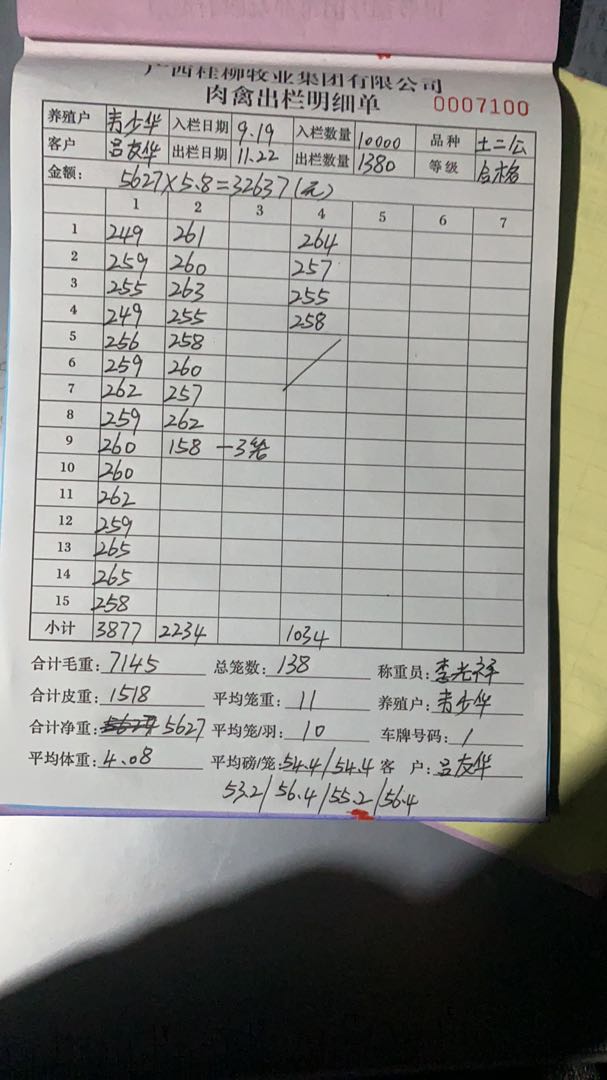 广西桂柳牧业集团有限公司
肉禽出栏明细单 0007100
养殖户 青少华 入栏日期 9.19 入栏数量 10000 品种 土二公
客户 吕友华 出栏日期 11.22 出栏数量 1380 等级 合格
金额: 5627×5.8=32637(元)
1 2 3 4 5 6 7
1 249 261 264
2 259 260 257
3 255 263 255
4 249 255 258
5 256 258
6 259 260
7 262 257
8 259 262
9 260 158 一3笼
10 260
11 262
12 259
13 265
14 265
15 258
小计 3877 2234 1034
合计毛重: 7145 总笼数: 138 称重员: 李光祥
合计皮重: 1518 平均笼重: 11 养殖户: 青少华
合计净重: 5627 平均笼/羽: 10 车牌号码: /
平均体重: 4.08 平均磅/笼: 54.4/54.4 客 户: 吕友华
53.2/56.4/55.2/56.4